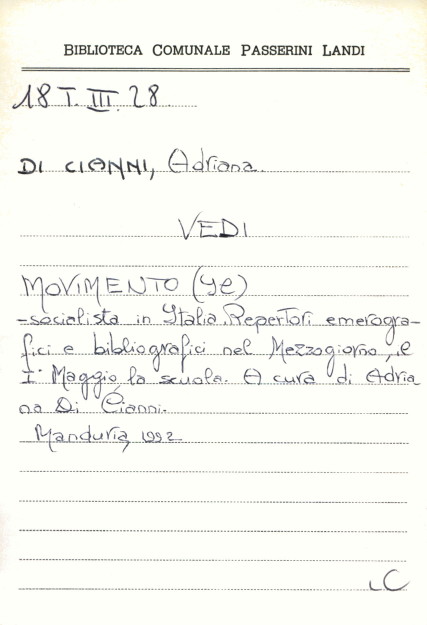 BIBLIOTECA COMUNALE PASSERINI LANDI
18 T. III. 28
DI CIANNI, Adriana.
VEDI
MOVIMENTO (Il)
-socialista in Italia. Repertori emerogra-
fici e bibliografici nel Mezzogiorno, il
I° Maggio, la scuola. A cura di Adria
na Di Cianni.
Manduria, 1992
LC